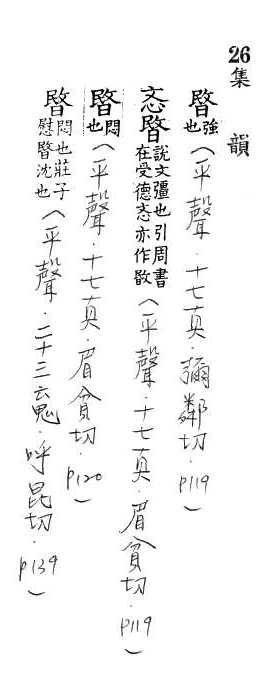 26 集韻
暋強也(平聲.十七真.彌鄰切.P119)
忞暋說文彊也引周書在受德忞亦作敃(平聲.十七真.眉貧切.P119)
暋悶也(平聲.十七真.眉貧切.P120)
暋悶也莊子慰暋沈也(平聲.二十三䰟.呼昆切.P139)